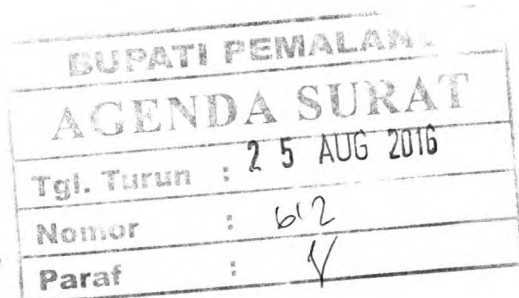 BUPATI PEMALANG
AGENDA SURAT
Tgl. Turun : 25 AUG 2016
Nomor : 612
Paraf :